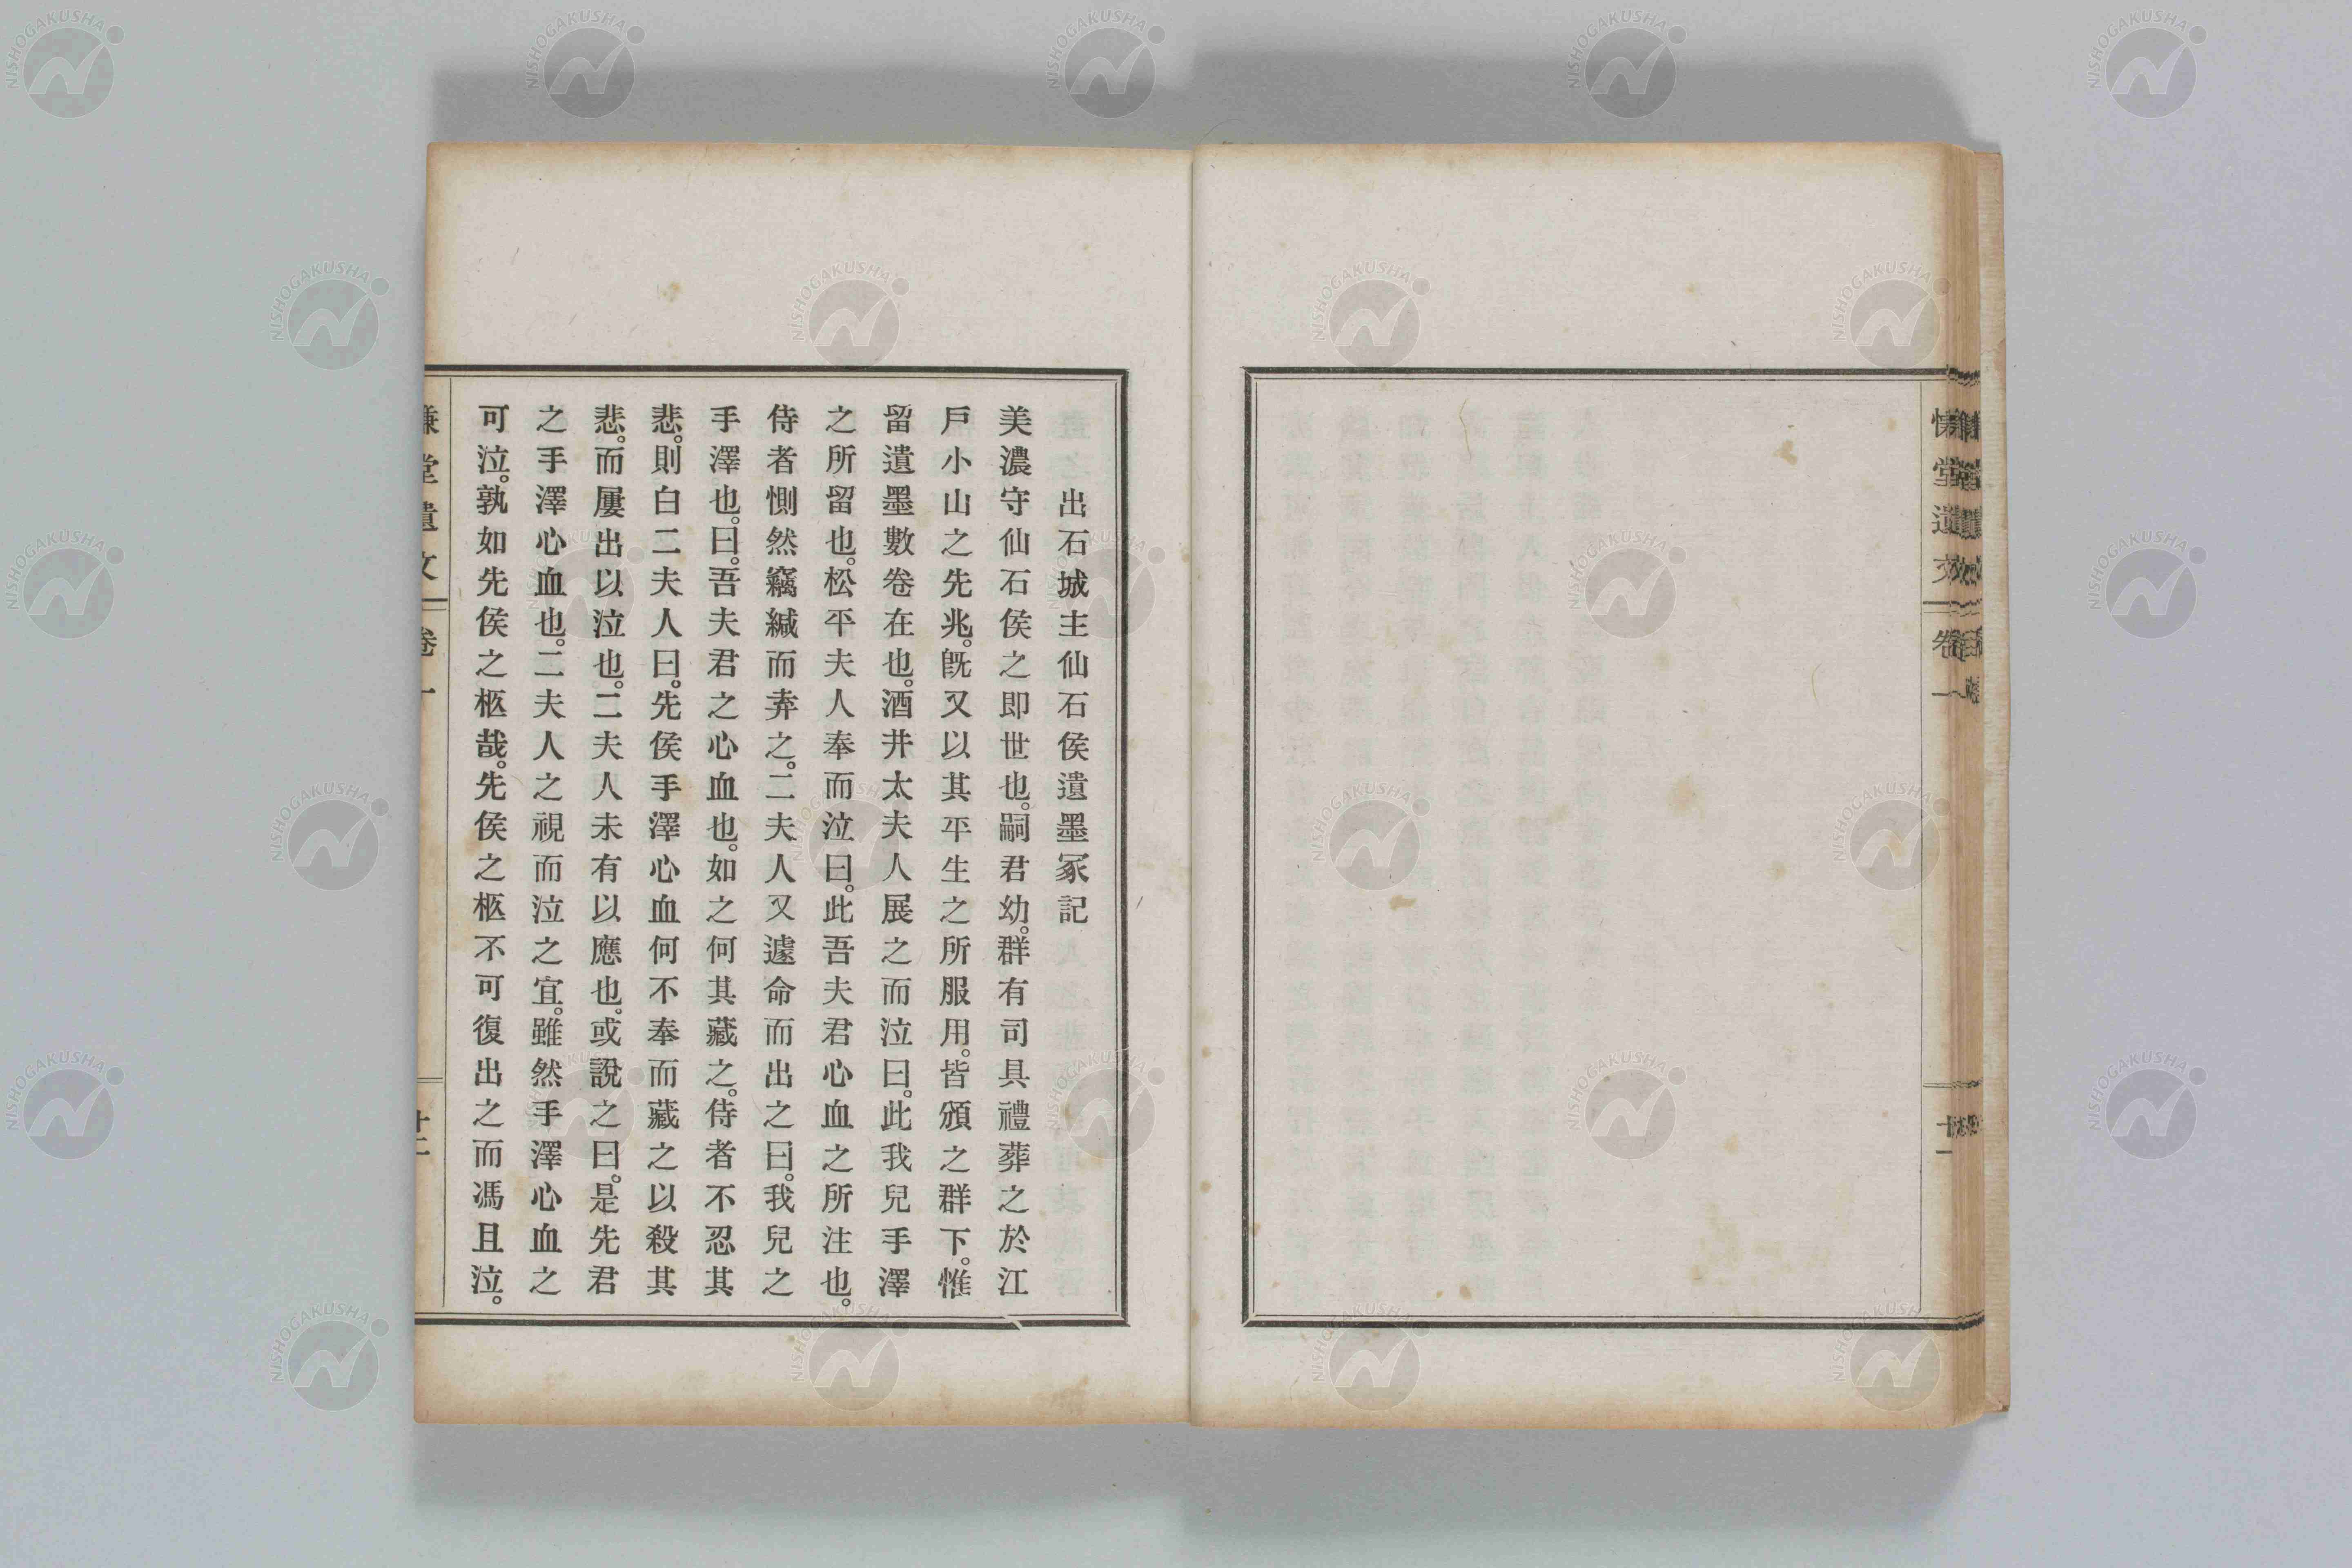 出石城主仙石侯遺墨冢記
美濃守仙石侯之即世也。嗣君幼。群有司具禮葬之於江
戶小山之先兆。既又以其平生之所服用。皆頒之群下。惟
留遺墨數卷在也。酒井太夫人展之而泣曰。此我兒手澤
之所留也。松平夫人奉而泣曰。此吾夫君心血之所注也。
侍者惻然竊緘而弆之。二夫人又遽命而出之曰。我兒之
手澤也。曰。吾夫君之心血也。如之何其藏之。侍者不忍其
悲。則白二夫人曰。先侯手澤心血何不奉而藏之以殺其
悲。而屢出以泣也。二夫人未有以應也。或說之曰。是先君
之手澤心血也。二夫人之視而泣之宜。雖然手澤心血之
可泣。孰如先侯之柩哉。先侯之柩不可復出之而馮且泣。
慊堂遺文 卷一 廿二
慊堂遺文 卷一
NISHOGAKUSHA